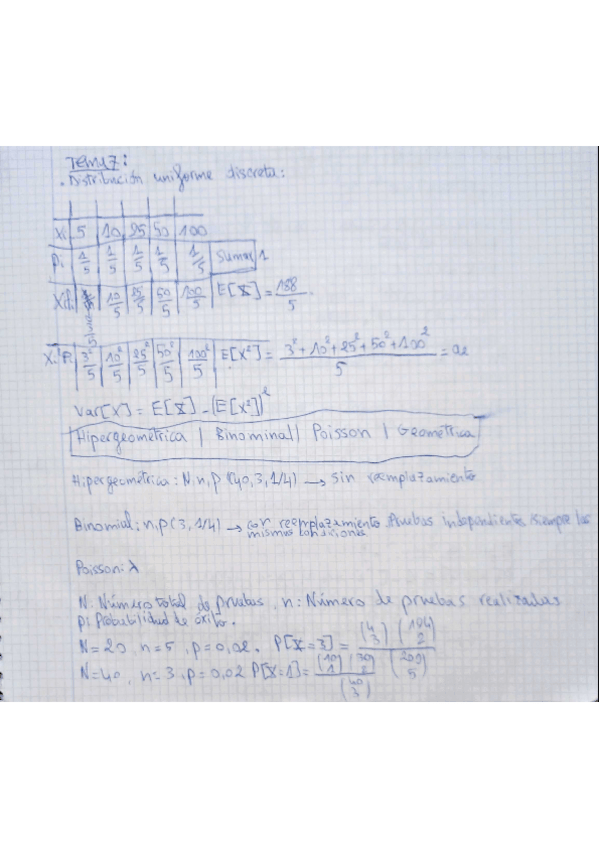 Tema 7:
. Distribución uniforme discreta:
Xi 5 10 25 50 100
Pi 1/5 1/5 1/5 1/5 1/5 Suma 1
XiPi 3/5 10/5 25/5 50/5 100/5 E[X] = 188/5
Xi²Pi 3²/5 10²/5 25²/5 50²/5 100²/5 E[X²] = (3²+10²+25²+50²+100²)/5 = a2
Var[X] = E[X] - (E[X²])²
Hipergeométrica | Binominal | Poisson | Geométrica
Hipergeométrica: N,n,p (40,3,1/4) → Sin reemplazamiento
Binomial: n,p (3,1/4) → con reemplazamiento. Pruebas independientes siempre las
mismas condiciones
Poisson: λ
N: Número total de pruebas, n: Número de pruebas realizadas
p: Probabilidad de éxito.
N=20, n=5, p=0,02. P[X=3] = (4 3)(194 2)/(200 5)
N=40, n=3, p=0,02 P[X=1] = (10 1)(30 2)/(40 3)